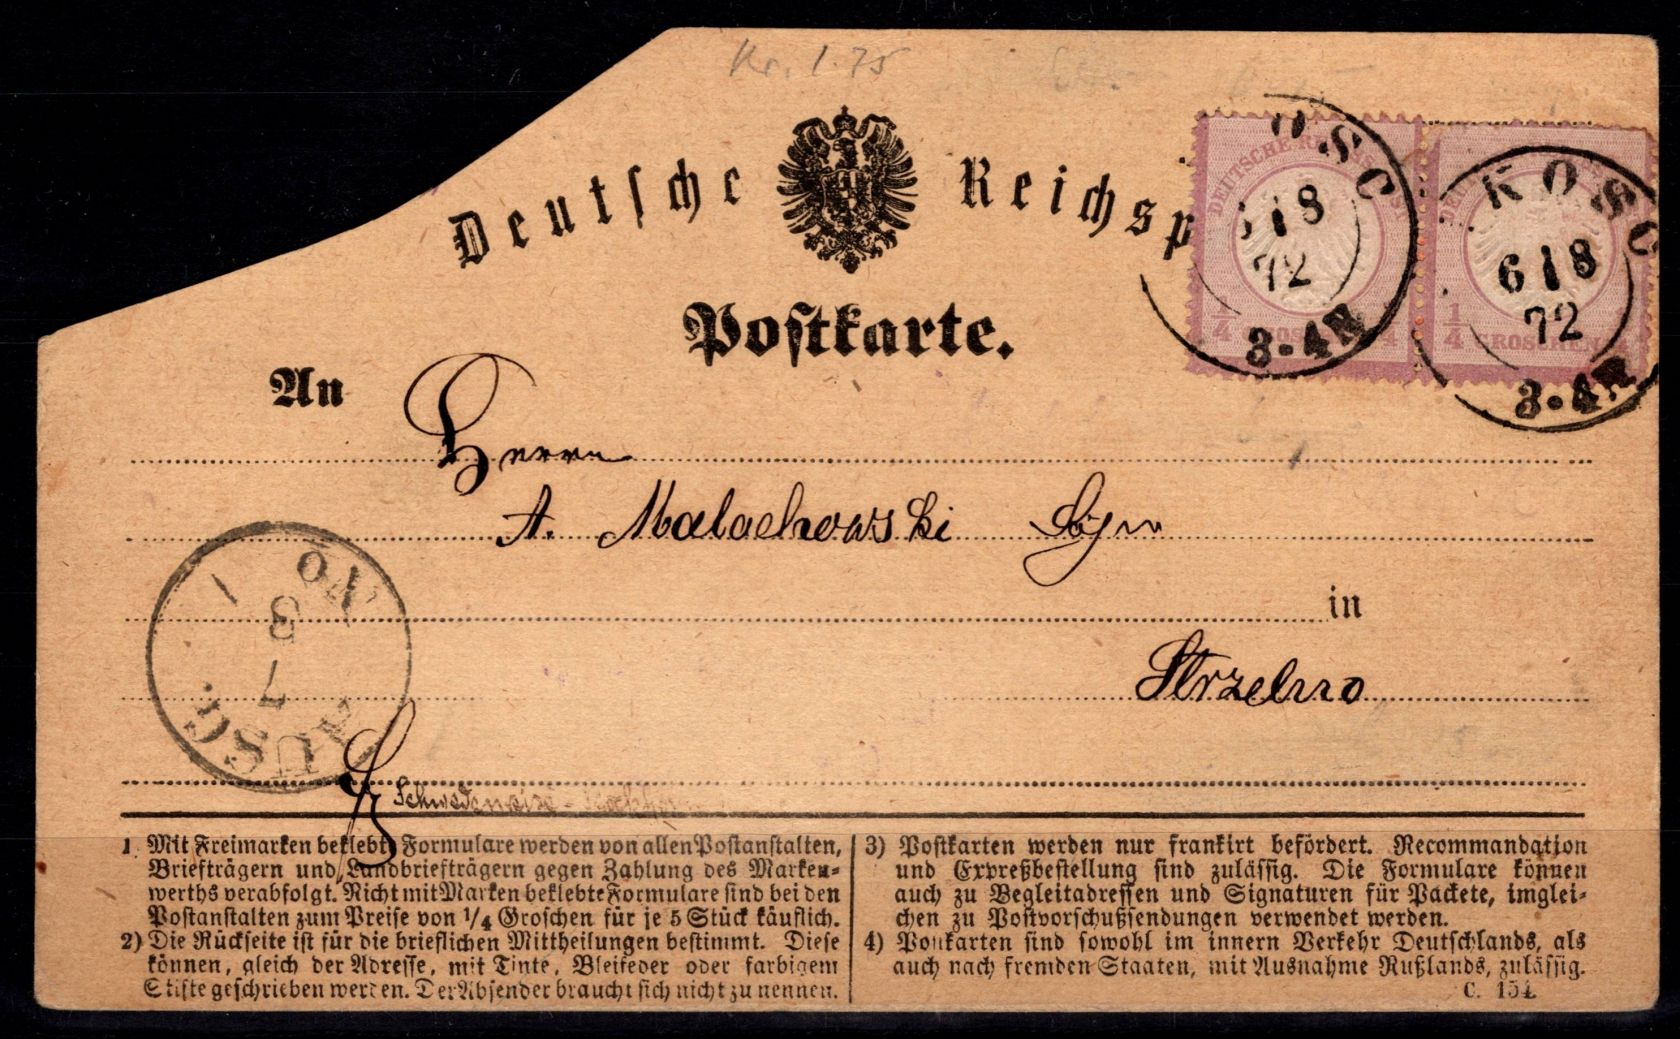 Kr. 1.75
Deutsche Reichsp
Postkarte.
DEUTSCHE REICHS-POST
1/4 GROSCHEN 1/4
OSC
18
72
3-4N
1/4 GROSCHEN
KOSC
6 18
72
3-4N
An
Herrn
A. Malachowski
in
Strzelno
7
8
AUSG.
1. Mit Freimarken beklebte Formulare werden von allen Postanstalten,
Briefträgern und Landbriefträgern gegen Zahlung des Marken-
werths verabfolgt. Nicht mit Marken beklebte Formulare sind bei den
Postanstalten zum Preise von 1/4 Groschen für je 5 Stück käuflich.
2) Die Rückseite ist für die brieflichen Mittheilungen bestimmt. Diese
können, gleich der Adresse, mit Tinte, Bleifeder oder farbigem
Stifte geschrieben werden. Der Absender braucht sich nicht zu nennen.
3) Postkarten werden nur frankirt befördert. Recommandation
und Expreßbestellung sind zulässig. Die Formulare können
auch zu Begleitadressen und Signaturen für Packete, imglei-
chen zu Postvorschußsendungen verwendet werden.
4) Postkarten sind sowohl im innern Verkehr Deutschlands, als
auch nach fremden Staaten, mit Ausnahme Rußlands, zulässig.
C. 154.